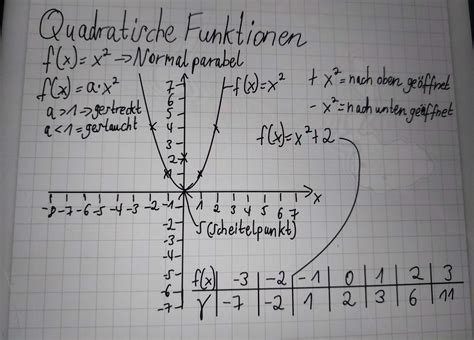 Quadratische Funktionen
f(x) = x² → Normalparabel
f(x) = a·x²
a > 1 → gestreckt
a < 1 = gestaucht
f(x) = x²
+ x² = nach oben geöffnet
- x² = nach unten geöffnet
f(x) = x² + 2
7
6
5
4
3
2
1
-8 -7 -6 -5 -4 -3 -2 -1 1 2 3 4 5 6 7 x
-1
-2
-3
-4
-5
-6
-7
S (Scheitelpunkt)
f(x) -3 -2 -1 0 1 2 3
Y -7 -2 1 2 3 6 11